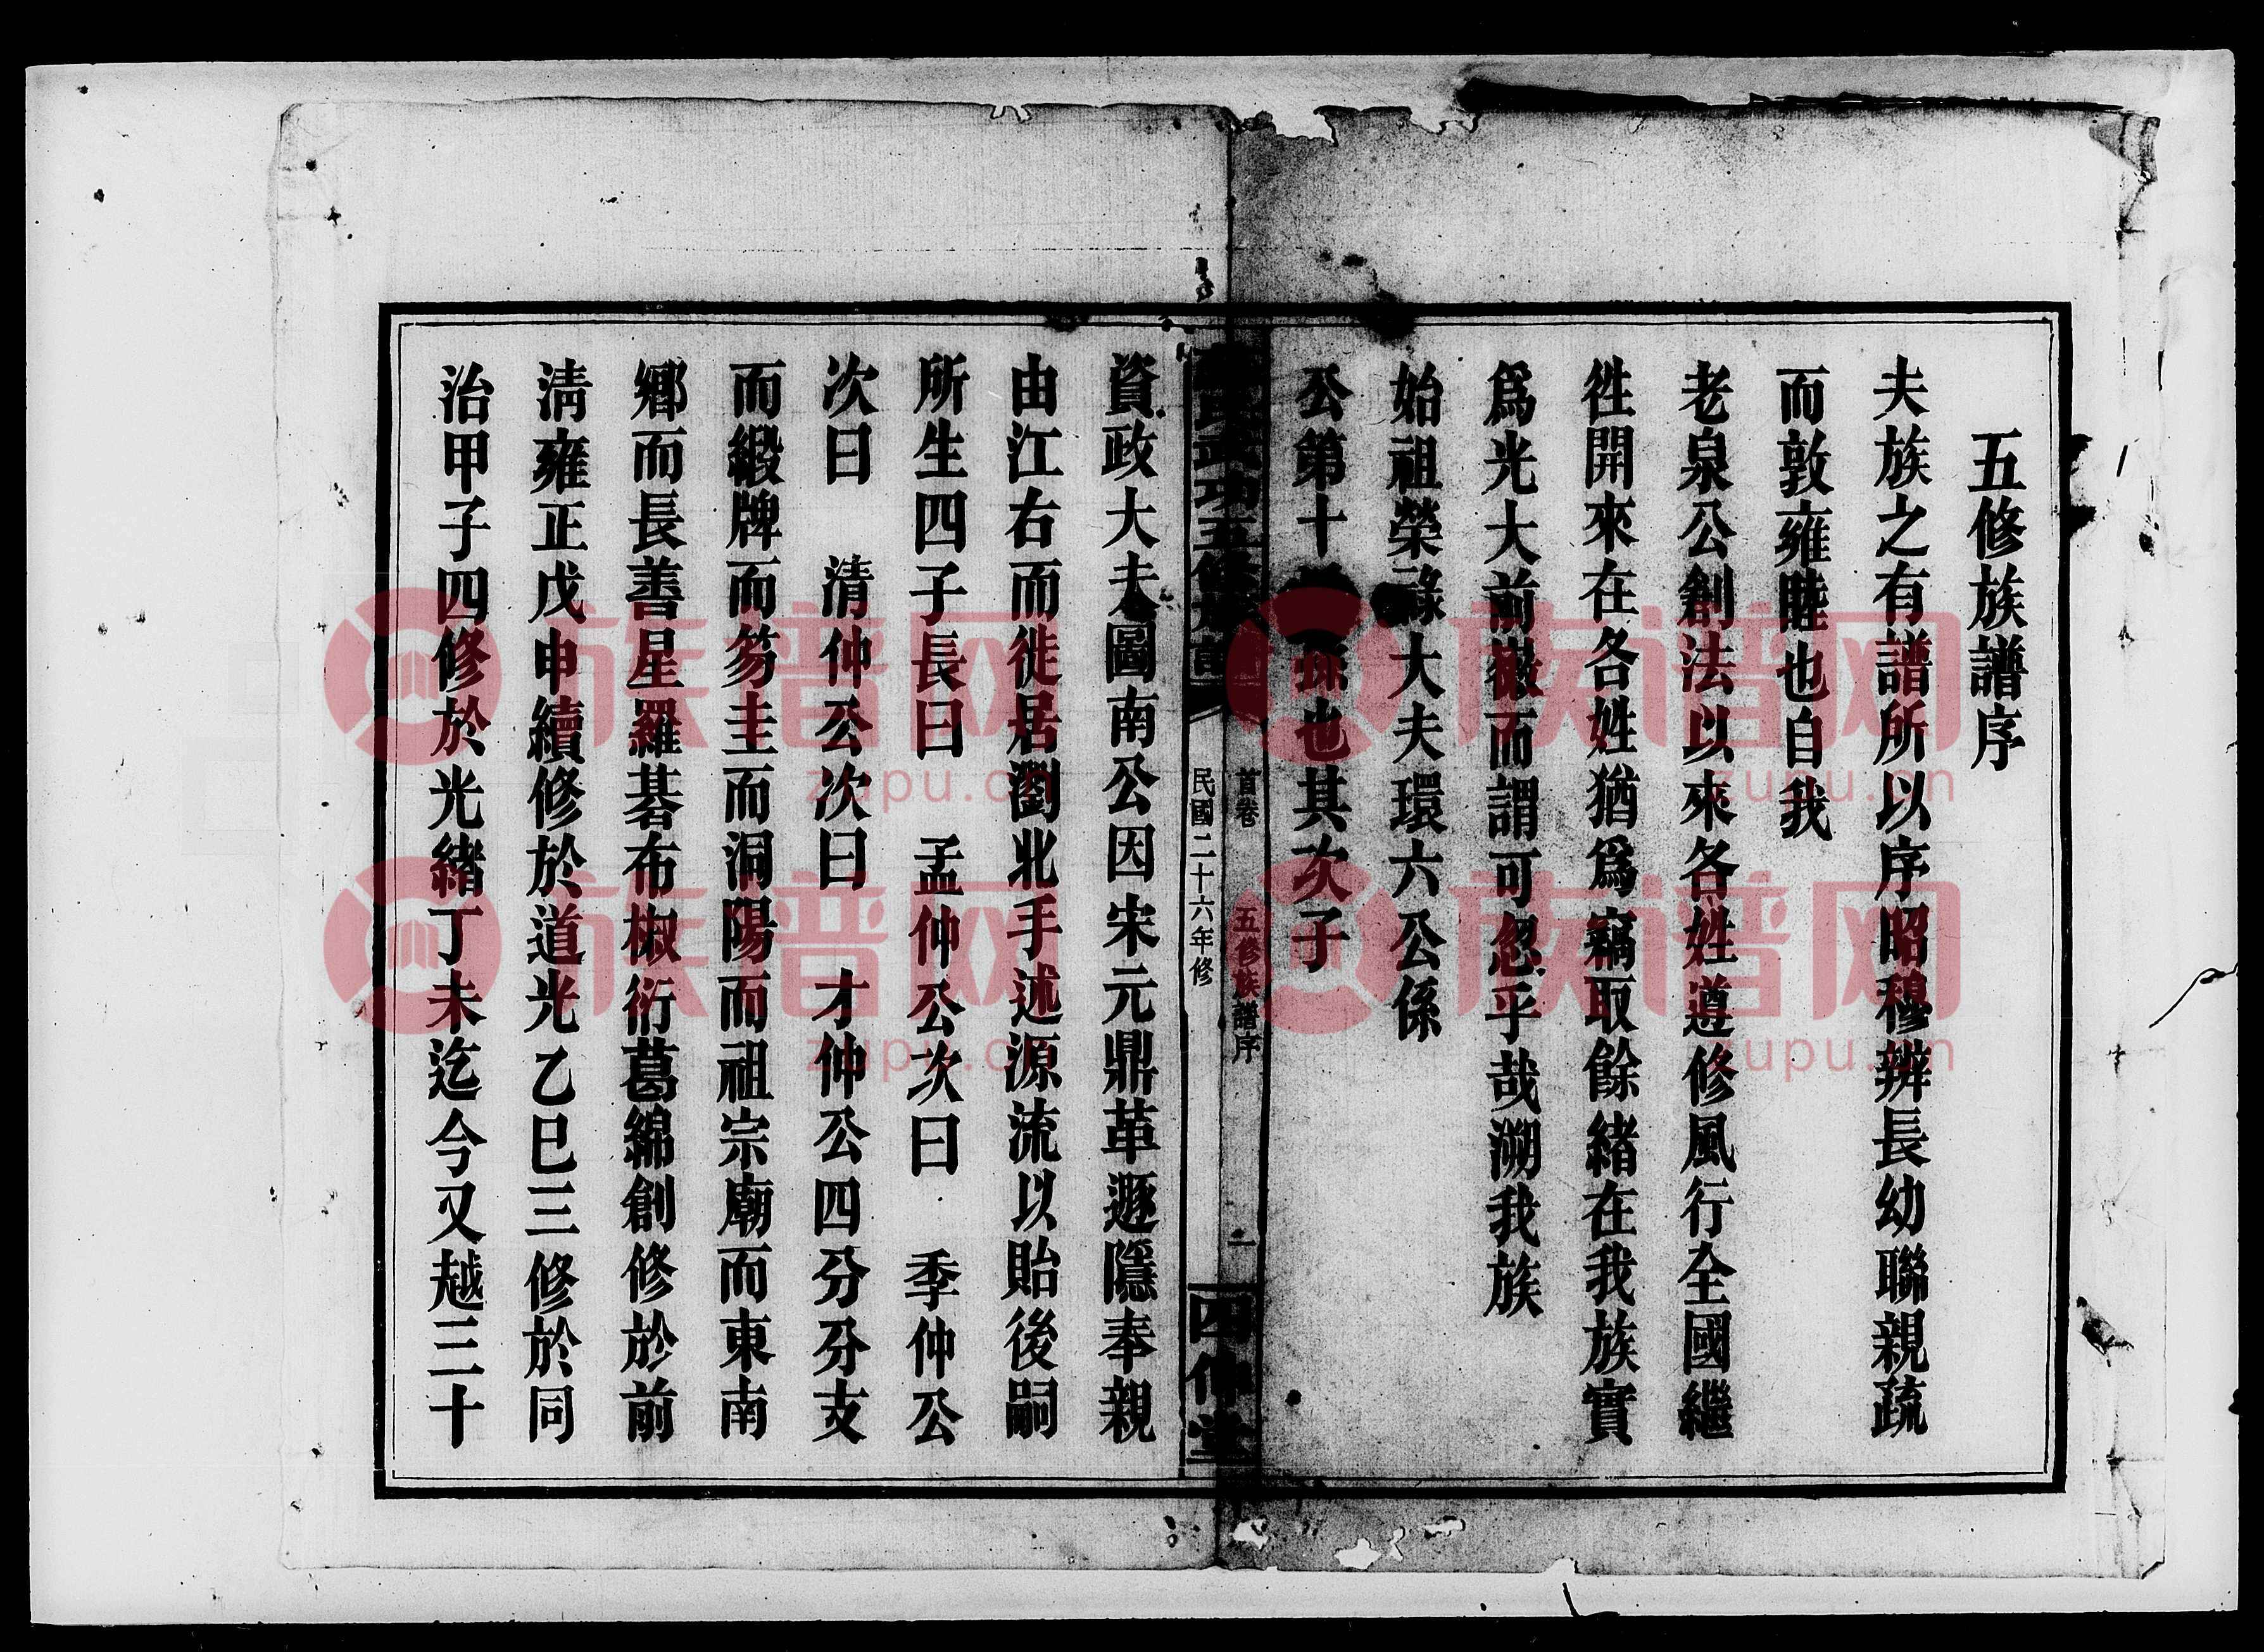 五修族譜序
夫族之有譜所以序昭穆辨長幼聯親疏
而敦雍睦也自我
老泉公創法以來各姓遵修風行全國繼
徃開來在各姓猶爲竊取餘緒在我族實
爲光大前徽而謂可忽乎哉溯我族
始祖榮祿大夫環六公係
公第十 孫也其次子
氏武功五修族
首卷 五修族譜序 一
民國二十六年修
四仲堂
資政大夫圖南公因宋元鼎革遯隱奉親
由江右而徙居瀏北手述源流以貽後嗣
所生四子長曰 孟仲公次曰 季仲公
次曰 清仲公次曰 才仲公四分分支
而緞牌而笏圭而洞陽而祖宗廟而東南
鄉而長善星羅碁布椒衍葛綿創修於前
清雍正戊申續修於道光乙巳三修於同
治甲子四修於光緒丁未迄今又越三十
族谱网
zupu.cn
族谱网
zupu.cn
族谱网
zupu.cn
族谱网
zupu.cn